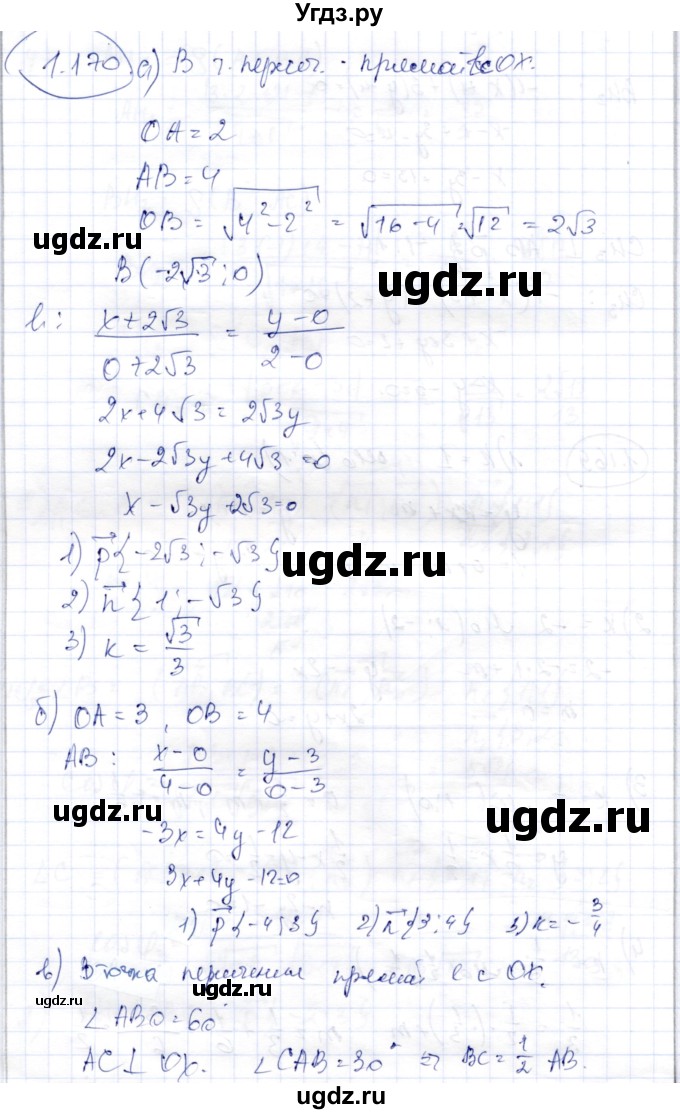 Угдз.ру
1.170. а) В т. перес. прямой с OX.
OA = 2
AB = 4
OB = √(4² - 2²) = √(16 - 4) = √12 = 2√3
ugdz.ru
ugdz.ru
B(-2√3; 0)
l: (x + 2√3)/(0 + 2√3) = (y - 0)/(2 - 0)
2x + 4√3 = 2√3y
2x - 2√3y + 4√3 = 0
x - √3y + 2√3 = 0
1) p⃗{-2√3; -√3}
ugdz.ru
ugdz.ru
2) n⃗{1; -√3}
3) k = √3/3
б) OA = 3, OB = 4
AB: (x - 0)/(4 - 0) = (y - 3)/(0 - 3)
ugdz.ru
ugdz.ru
-3x = 4y - 12
3x + 4y - 12 = 0
1) p⃗{-4; 3} 2) n⃗{3; 4} 3) k = -3/4
в) В точка пересечения прямой l с OX.
ugdz.ru
ugdz.ru
∠ABO = 60°
AC ⊥ OX. ∠CAB = 30° ⇒ BC = 1/2 AB.
ugdz.ru